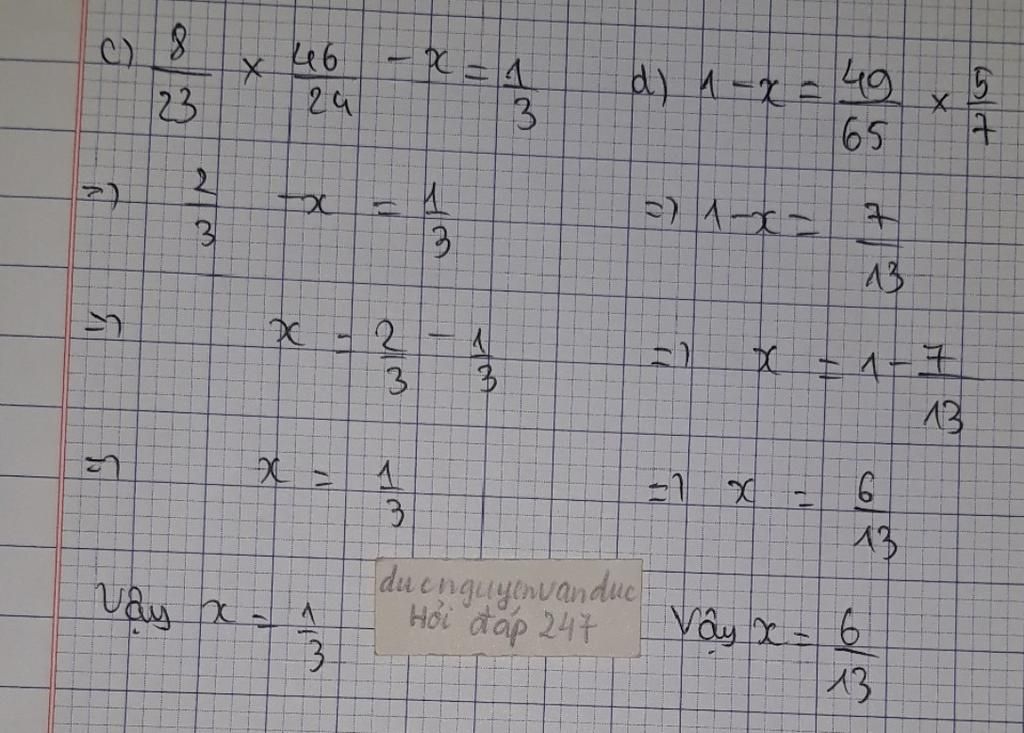 c) 8/23 × 46/24 - x = 1/3
=> 2/3 - x = 1/3
=> x = 2/3 - 1/3
=> x = 1/3
Vậy x = 1/3
d) 1 - x = 49/65 × 5/7
=> 1 - x = 7/13
=> x = 1 - 7/13
=> x = 6/13
Vậy x = 6/13
ducnguyenvanduc
Hỏi đáp 247